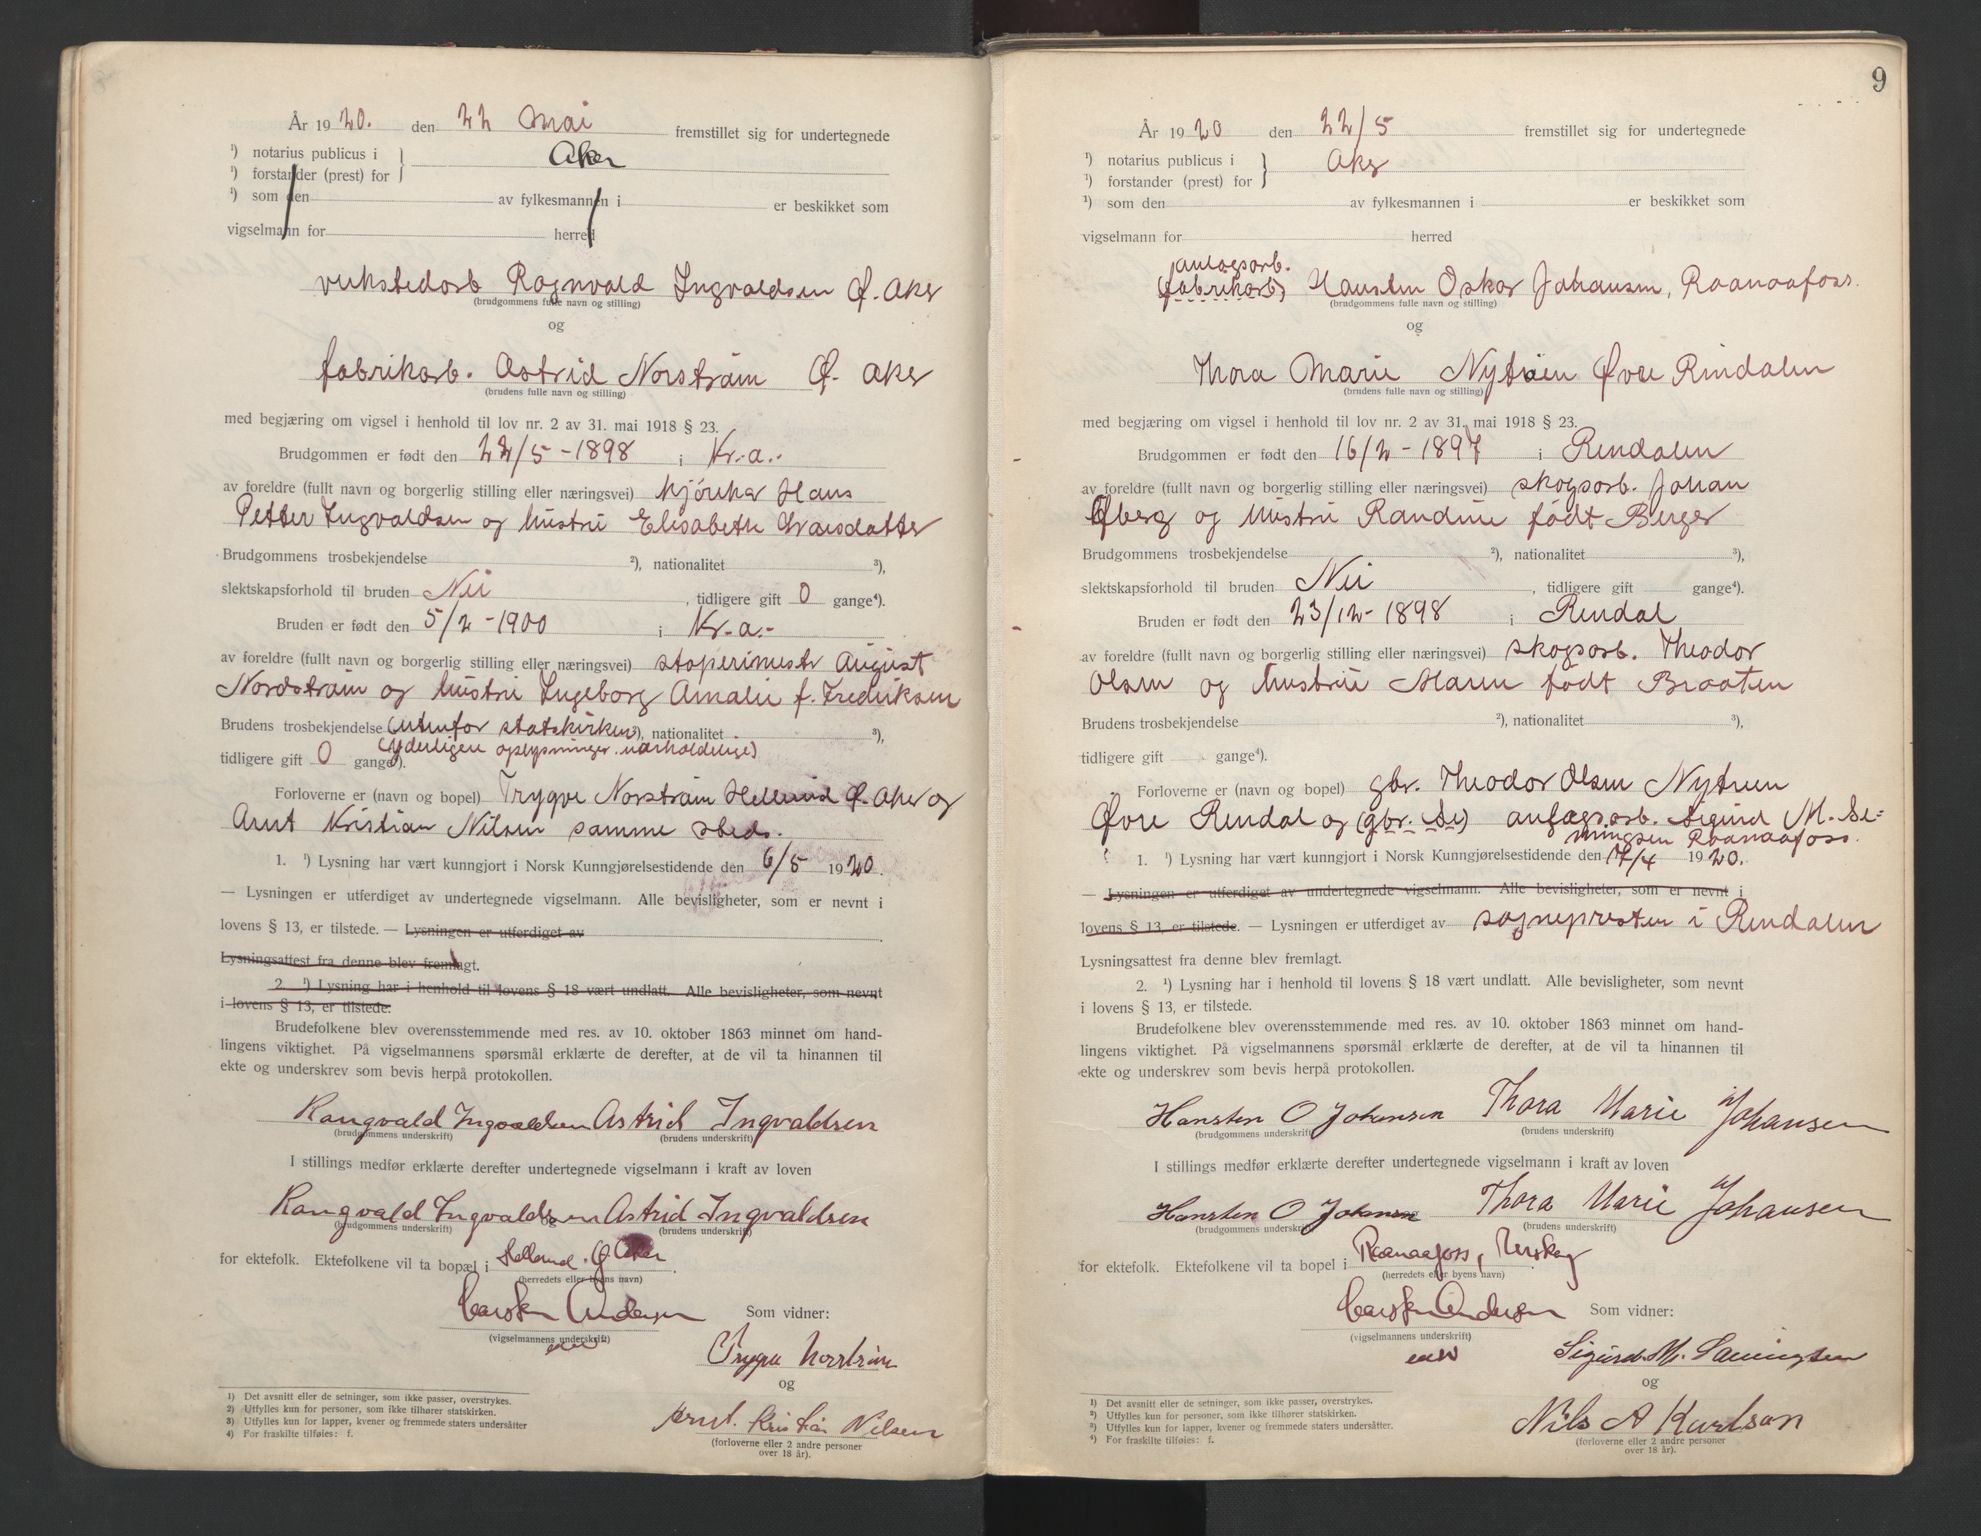 År 1920. den 22 Mai fremstillet sig for undertegnede
¹) notarius publicus i } Aker
¹) forstander (prest) for
¹) som den av fylkesmannen i er beskikket som
vigselmann for herred
verkstedarb Ragnvald Ingvaldsen Ø. Aker
(brudgommens fulle navn og stilling)
og
fabrikarb. Astrid Norstrøm Ø. Aker
(brudens fulle navn og stilling)
med begjæring om vigsel i henhold til lov nr. 2 av 31. mai 1918 § 23.
Brudgommen er født den 22/5-1898 i Kr.a.-
av foreldre (fullt navn og borgerlig stilling eller næringsvei) kjører Hans
Petter Ingvaldsen og hustru Elisabeth Larsdatter
Brudgommens trosbekjendelse ²), nationalitet ³),
slektskapsforhold til bruden Nei, tidligere gift 0 gange⁴).
Bruden er født den 5/2-1900 i Kr.a.-
av foreldre (fullt navn og borgerlig stilling eller næringsvei) støperimestr August
Nordstrøm og hustru Ingeborg Amalie f. Fredriksen
Brudens trosbekjendelse (utenfor statskirken ²), nationalitet ³),
(yderligere oplysninger uerholdelige)
tidligere gift 0 gange⁴).
Forloverne er (navn og bopel) Trygve Norstrøm Hellerud Ø. Aker og
Arnt Kristian Nilsen samme steds.
1. ¹) Lysning har vært kunngjort i Norsk Kunngjørelsestidende den 6/5 1920.
— Lysningen er utferdiget av undertegnede vigselmann. Alle bevisligheter, som er nevnt i
lovens § 13, er tilstede. — Lysningen er utferdiget av
Lysningsattest fra denne blev fremlagt.
2. ¹) Lysning har i henhold til lovens § 18 vært undlatt. Alle bevisligheter, som nevnt
i lovens § 13, er tilstede.
Brudefolkene blev overensstemmende med res. av 10. oktober 1863 minnet om hand-
lingens viktighet. På vigselmannens spørsmål erklærte de derefter, at de vil ta hinannen til
ekte og underskrev som bevis herpå protokollen.
Rangvald Ingvaldsen Astrid Ingvaldsen
(brudgommens underskrift) (brudens underskrift)
I stillings medfør erklærte derefter undertegnede vigselmann i kraft av loven
Rangvald Ingvaldsen Astrid Ingvaldsen
(brudgommens underskrift) (brudens underskrift)
for ektefolk. Ektefolkene vil ta bopæl i Ø Aker
(herredets eller byens navn)
Carsten Andersen Som vidner:
(vigselmannens underskrift)
Trygve Norstrøm
og
Arnt. Kristian Nilsen
(forloverne eller 2 andre personer
over 18 år).
1) Det avsnitt eller de setninger, som ikke passer, overstrykes.
2) Utfylles kun for personer, som ikke tilhører statskirken.
3) Utfylles kun for lapper, kvener og fremmede staters undersåtter
4) For fraskilte tilføies: f.
9
År 1920 den 22/5 fremstillet sig for undertegnede
¹) notarius publicus i } Aker
¹) forstander (prest) for
¹) som den av fylkesmannen i er beskikket som
vigselmann for herred
anlægsarb.
(fabrikarb) Hansten Oskar Johansen, Raanaafoss.
(brudgommens fulle navn og stilling)
og
Thora Marie Nytrøen Øvre Rindalen
(brudens fulle navn og stilling)
med begjæring om vigsel i henhold til lov nr. 2 av 31. mai 1918 § 23.
Brudgommen er født den 16/2-1897 i Rendalen
av foreldre (fullt navn og borgerlig stilling eller næringsvei) skogsarb. Johan
Øberg og hustru Randine født Berger
Brudgommens trosbekjendelse ²), nationalitet ³),
slektskapsforhold til bruden Nei, tidligere gift gange⁴).
Bruden er født den 23/12-1898 i Rendal
av foreldre (fullt navn og borgerlig stilling eller næringsvei) skogsarb. Theodor
Olsen og hustru Maren født Braaten
Brudens trosbekjendelse ²), nationalitet ³),
tidligere gift gange⁴).
Forloverne er (navn og bopel) gbr. Theodor Olsen Nytrøen
Øvre Rendal og (gbr. Se) anlægsarb. Sigurd M. Se-
mingsen Raanaafoss.
1. ¹) Lysning har vært kunngjort i Norsk Kunngjørelsestidende den 17/4 1920.
— Lysningen er utferdiget av undertegnede vigselmann. Alle bevisligheter, som er nevnt i
lovens § 13, er tilstede. — Lysningen er utferdiget av sognepresten i Rendalen
Lysningsattest fra denne blev fremlagt.
2. ¹) Lysning har i henhold til lovens § 18 vært undlatt. Alle bevisligheter, som nevnt
i lovens § 13, er tilstede.
Brudefolkene blev overensstemmende med res. av 10. oktober 1863 minnet om hand-
lingens viktighet. På vigselmannens spørsmål erklærte de derefter, at de vil ta hinannen til
ekte og underskrev som bevis herpå protokollen.
Hansten O Johansen Thora Marie Johansen
(brudgommens underskrift) (brudens underskrift)
I stillings medfør erklærte derefter undertegnede vigselmann i kraft av loven
Hansten O Johansen Thora Marie Johansen
(brudgommens underskrift) (brudens underskrift)
for ektefolk. Ektefolkene vil ta bopel i Raanaafoss, Urskog
(herredets eller byens navn)
Carsten Andersen Som vidner:
(vigselmannens underskrift)
Sigurd. M. Semingsen
og
Nils A Karlson
(forloverne eller 2 andre personer
over 18 år).
¹) Det avsnitt eller de setninger, som ikke passer, overstrykes.
²) Utfylles kun for personer, som ikke tilhører statskirken.
³) Utfylles kun for lapper, kvener og fremmede staters undersåtter.
⁴) For fraskilte tilføies: f.